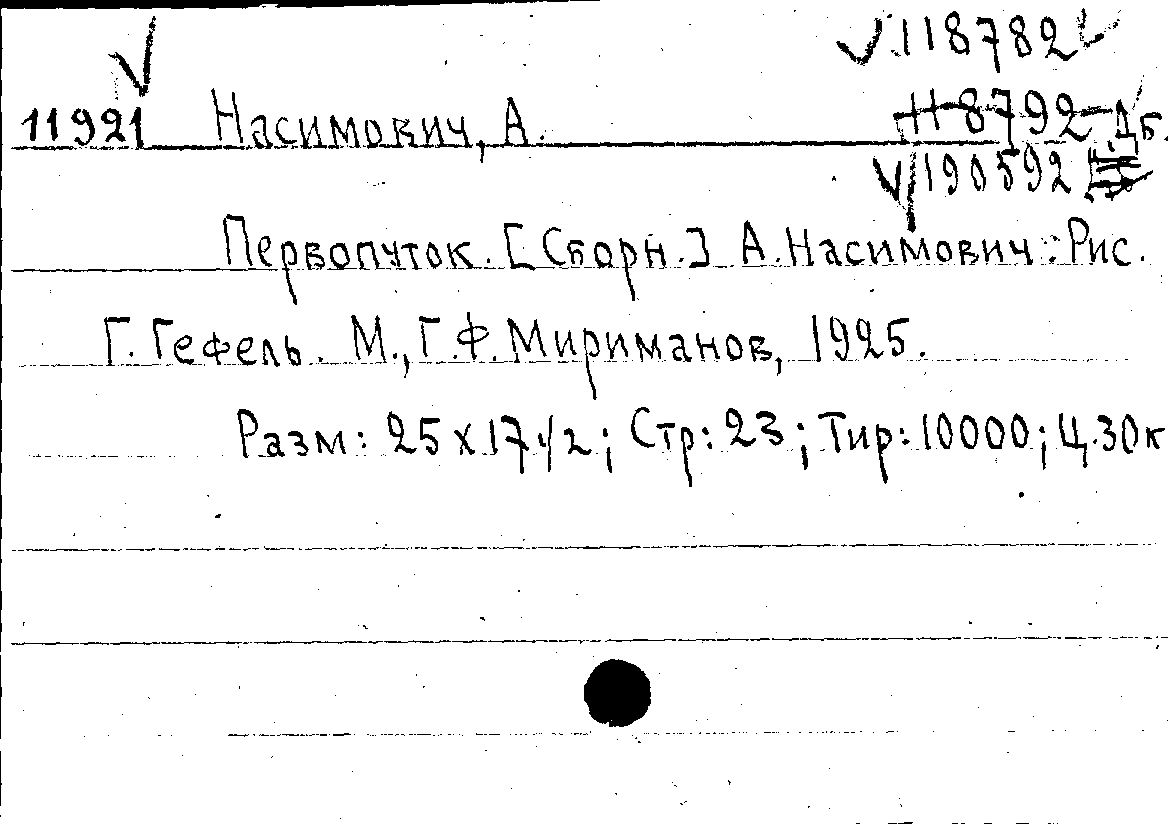 118782
11921 Насимович, А. 118792 Дб.
190592
Первопуток. [Сборн.] А. Насимович: Рис.
Г. Гефель. М., Г.Ф. Мириманов, 1925.
Разм: 25 x 17 1/2; Стр: 23; Тир: 10000; Ц. 30к